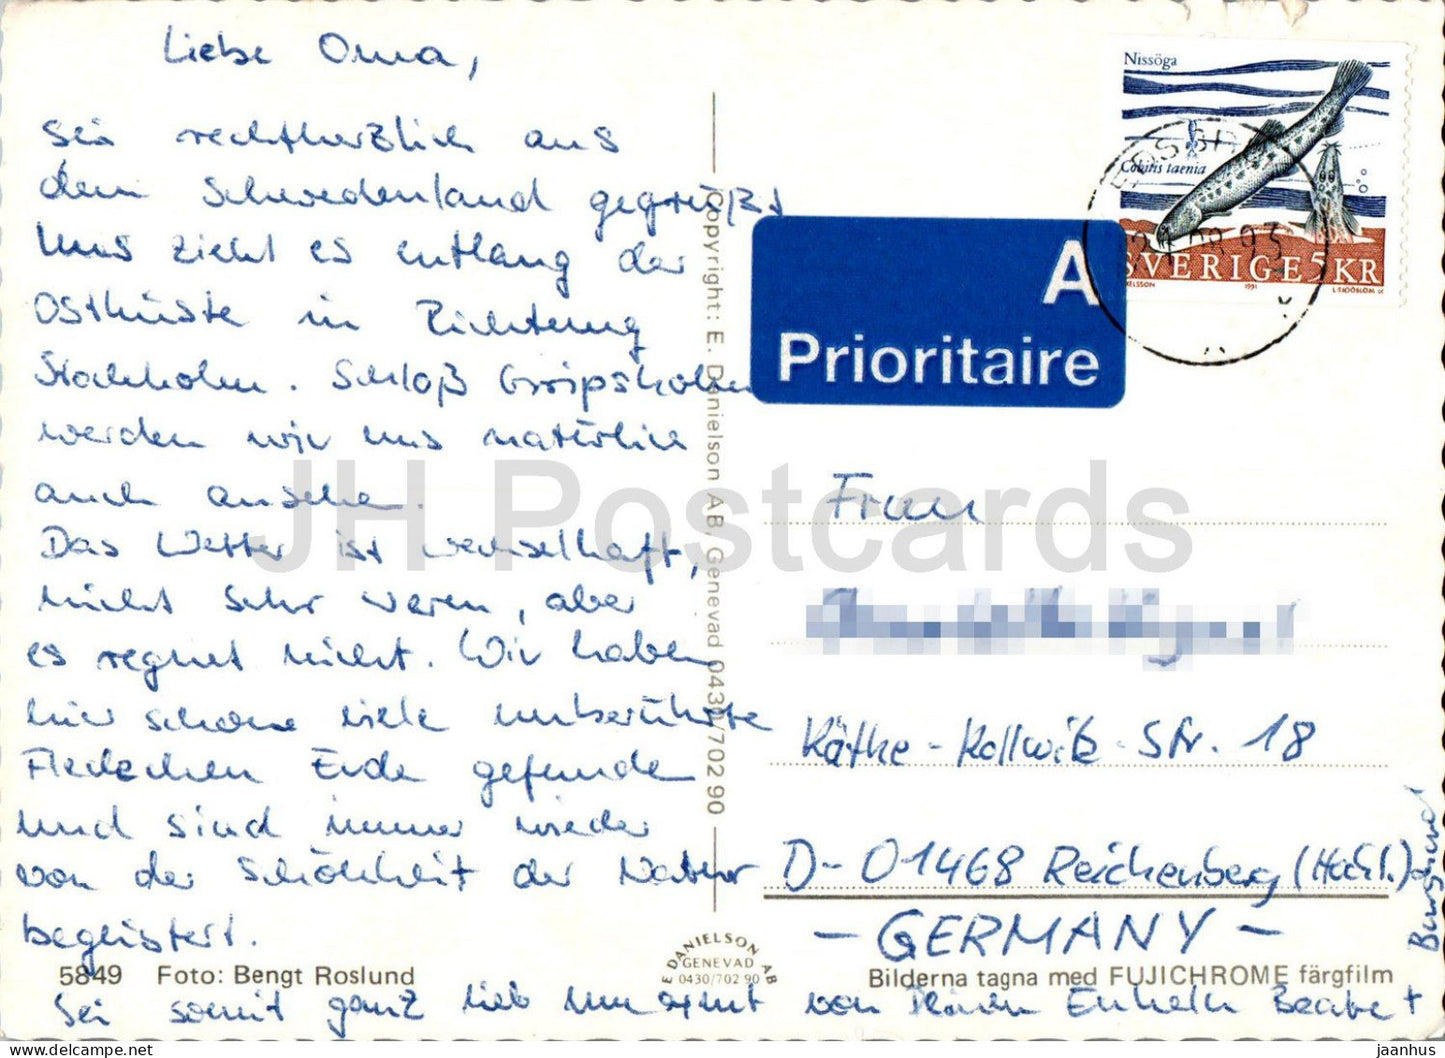 Liebe Oma,
sei rechtherzlich aus
dem Schwedenland gegrüßt
Uns zieht es entlang der
Ostküste in Richtung
Stockholm. Schloß Gripsholm
werden wir uns natürlich
auch ansehen.
Das Wetter ist wechselhaft,
nicht sehr warm, aber
es regnet nicht. Wir haben
hier schone viele unberührte
Fleckchen Erde gefunden
und sind immer wieder
von der Schönheit der Natur
begeistert.
Sei somit ganz lieb umarmt von Deinen Enkeln Beate +
Burghard
5849 Foto: Bengt Roslund
Copyright: E. Danielson AB, Genevad 0430/702 90
E DANIELSON AB
GENEVAD
0430/702 90
Nissöga
Cobitis taenia
SVERIGE 5 KR
1991
93
A
Prioritaire
Frau
Käthe-Kollwitz-Str. 18
D-01468 Reichenberg (Hochl.)
- GERMANY -
Bilderna tagna med FUJICHROME färgfilm
JH Postcards
For sale on Delcampe.net
jaanhus